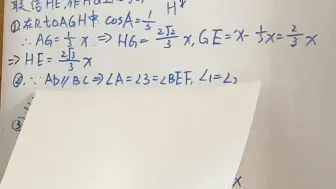 连结HE,作H
①在Rt△AGH中 cosA=1/3 H
∴AG=1/3 x ⇒ HG=2√2/3 x, GE=x-1/3x=2/3 x
⇒ HE=2√3/3 x
②∵AD//BC⇒∠A=∠3=∠BEF, ∠1=∠2
③
x